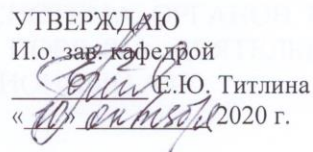 УТВЕРЖДАЮ
И.о. зав. кафедрой
Е.Ю. Титлина
«10» октября 2020 г.